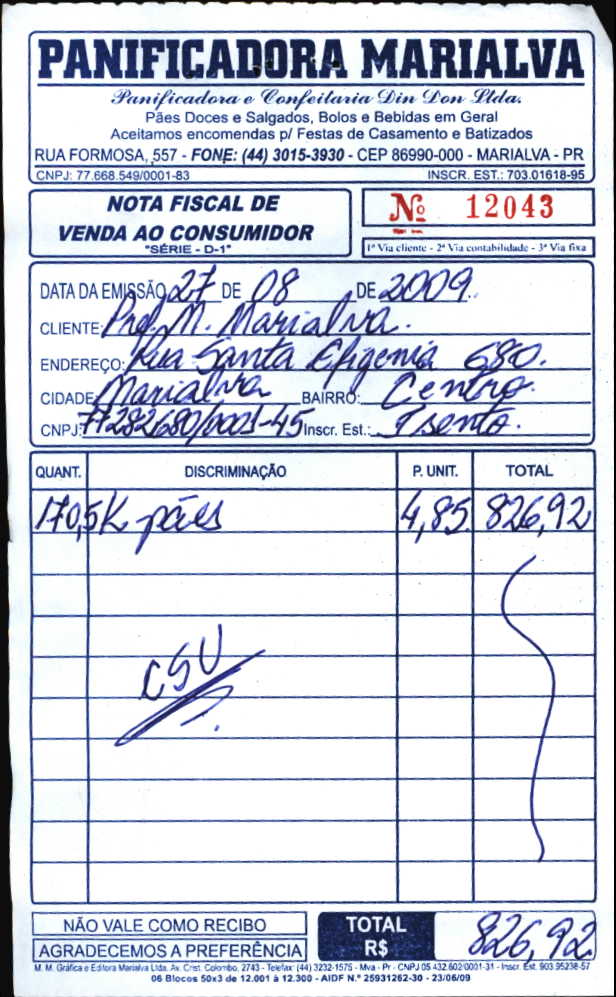 PANIFICADORA MARIALVA
Panificadora e Confeitaria Din Don Ltda.
Pães Doces e Salgados, Bolos e Bebidas em Geral
Aceitamos encomendas p/ Festas de Casamento e Batizados
RUA FORMOSA, 557 - FONE: (44) 3015-3930 - CEP 86990-000 - MARIALVA - PR
CNPJ: 77.668.549/0001-83 INSCR. EST.: 703.01618-95
NOTA FISCAL DE
VENDA AO CONSUMIDOR
"SÉRIE - D-1"
Nº 12043
1ª Via cliente - 2ª Via contabilidade - 3ª Via fixa
DATA DA EMISSÃO 27 DE 08 DE 2009.
CLIENTE: Pref. M. Marialva.
ENDEREÇO: Rua Santa Efigenia 680.
CIDADE: Marialva BAIRRO: Centro.
CNPJ: 77282680/0001-45 Inscr. Est.: Isento.
QUANT. DISCRIMINAÇÃO P. UNIT. TOTAL
170,5K pães 4,85 826,92
CSU
NÃO VALE COMO RECIBO
AGRADECEMOS A PREFERÊNCIA
TOTAL R$ 826,92
M. M. Gráfica e Editora Marialva Ltda. Av. Crist. Colombo, 2743 - Telefax: (44) 3232-1575 - Mva - Pr - CNPJ 05.432.602/0001-31 - Inscr. Est. 903.95238-57
06 Blocos 50x3 de 12.001 à 12.300 - AIDF N.º 25931262-30 - 23/06/09